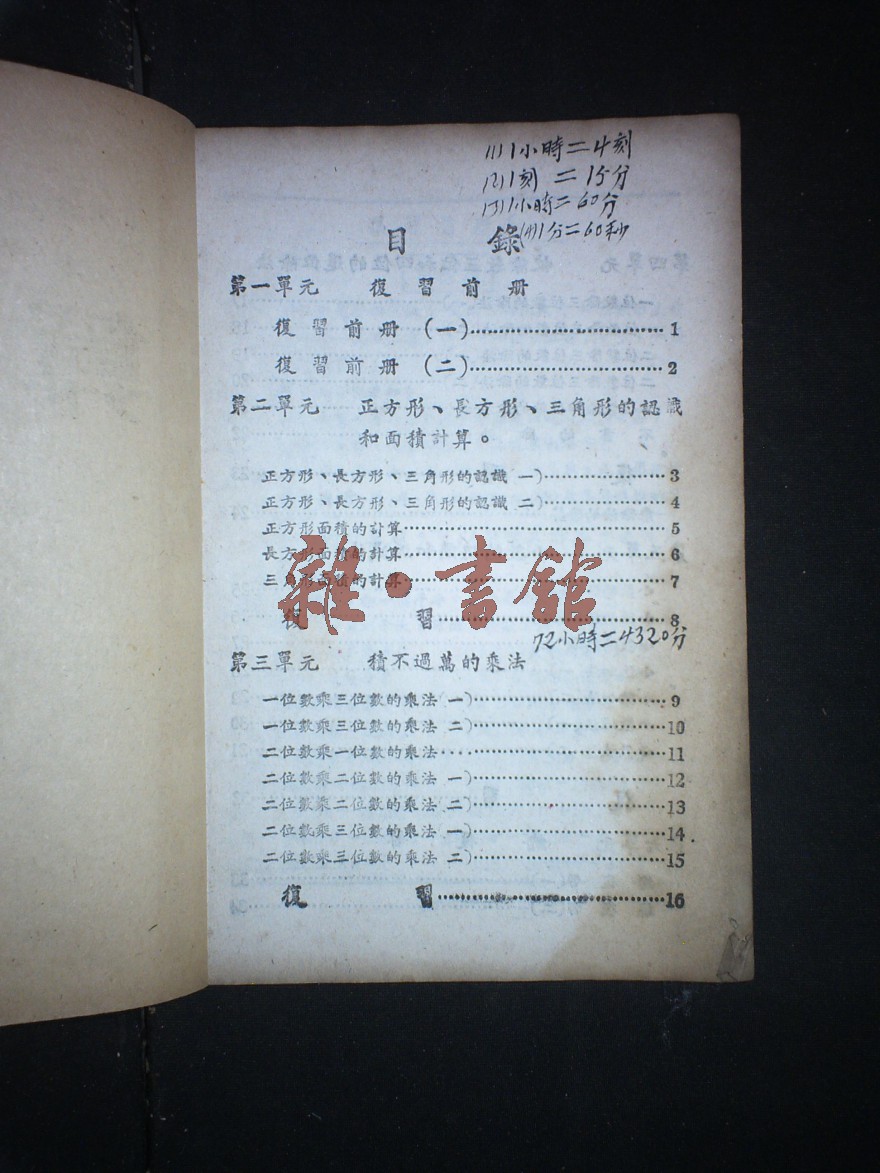 (1) 1小時=4刻
(2) 1刻=15分
(3) 1小時=60分
(4) 1分=60秒
目錄
第一單元 復習前册
復習前册(一)……1
復習前册(二)……2
第二單元 正方形、長方形、三角形的認識
和面積計算。
正方形、長方形、三角形的認識 一)……3
正方形、長方形、三角形的認識 二)……4
正方形面積的計算……5
長方形面積的計算……6
三角形面積的計算……7
雜·書館
復習……8
72小時=4320分
第三單元 積不過萬的乘法
一位數乘三位數的乘法 一)……9
一位數乘三位數的乘法 二)……10
二位數乘一位數的乘法……11
二位數乘二位數的乘法 一)……12
二位數乘二位數的乘法 二)……13
二位數乘三位數的乘法 一)……14
二位數乘三位數的乘法 二)……15
復習……16